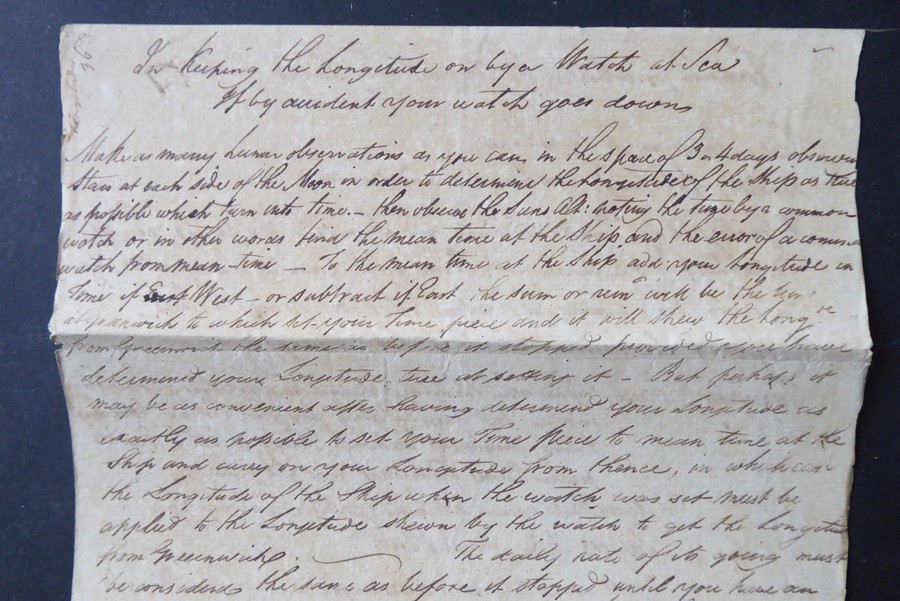 In Keeping the Longitude on by a Watch at Sea
If by accident your watch goes down
Make as many Lunar observations as you can in the space of 3 or 4 days observing
Stars at each side of the Moon in order to determine the Longitude of the Ship as true
as possible which turn into time. – then observe the Suns Alt: noting the time by a common
watch or in other words find the mean time at the Ship and the error of a common
watch from mean time – To the mean time at the Ship add your Longitude in
Time if West – or subtract if East the sum or rem.r will be the time
at Greenwich to which set your Time piece and it will shew the Long.de
from Greenwich the same as before it stopped provided you have
determined your Longitude true at setting it – But perhaps it
may be as convenient after having determind your Longitude as
exactly as possible to set your Time piece to mean time at the
Ship and carry on your Longitude from thence, in which case
the Longitude of the Ship when the watch was set must be
applied to the Longitude shewn by the watch to get the Longitude
from Greenwich. The daily rate of its going must
be considerd the same as before it stopped until you have an